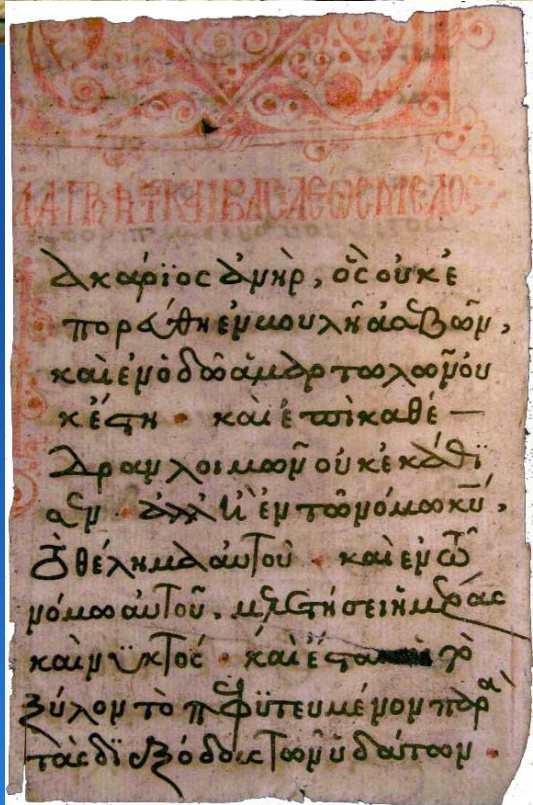 ΒΑΣΙΛΕΩΣ ΜΕΛΟΣ
ακάρϊος ἀνὴρ, ὃς οὐκ ἐ
πορεύθη ἐν βουλῆ ἀσεβῶν,
καὶ ἐν ὁδῶ ἁμαρτωλῶν οὐ
κ ἔστη · καὶ ἐπὶ καθέ —
δραν λοιμῶν οὐκ ἐκάθϊ
σεν · ἀλλ' ἢ ἐν τῶ νόμω κῡ,
τὸ θέλημα αὐτοῦ · καὶ ἐν τῶ
νόμω αὐτοῦ, μελετήσει ἡμέρας
καὶ νϋκτός · καὶ ἔσται τὸ
ξύλον τὸ πεφϋτευμένον παρὰ
τὰς διεξόδους τῶν ὑδάτων ·